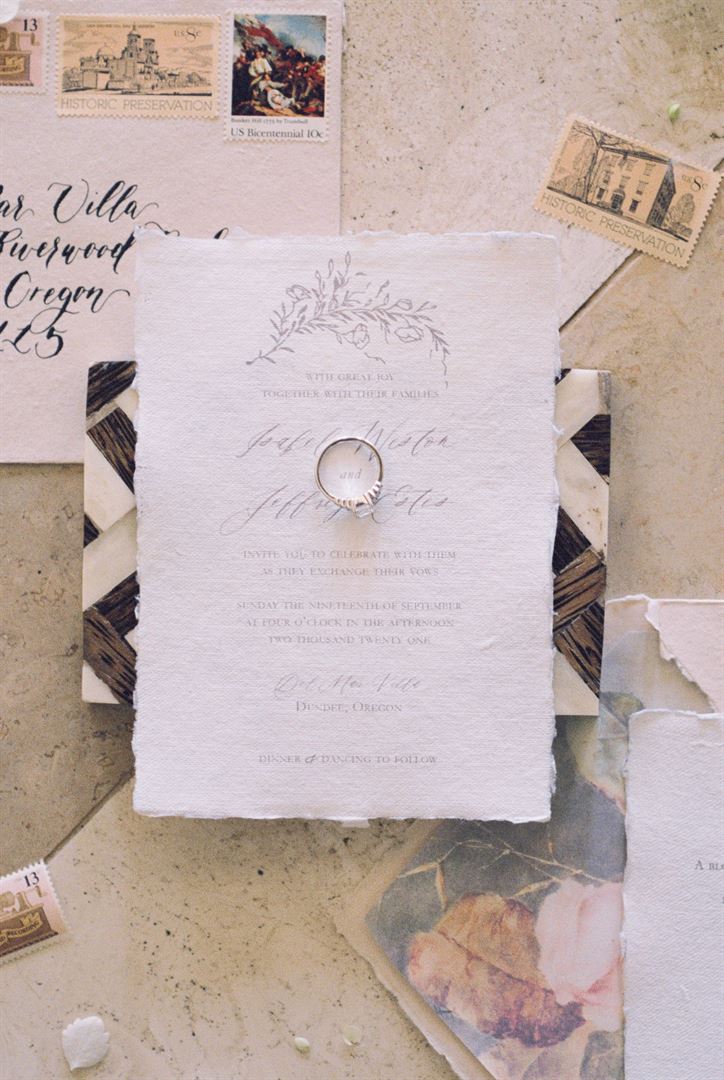 13
USA 8c
HISTORIC PRESERVATION
Bunker Hill 1775 by Trumbull
US Bicentennial 10c
Villa
Riverwood
Oregon
8c
HISTORIC PRESERVATION
WITH GREAT JOY
TOGETHER WITH THEIR FAMILIES
and
Estis
INVITE YOU TO CELEBRATE WITH THEM
AS THEY EXCHANGE THEIR VOWS
SUNDAY THE NINETEENTH OF SEPTEMBER
AT FOUR O'CLOCK IN THE AFTERNOON
TWO THOUSAND TWENTY ONE
Del Mar Villa
DUNDEE, OREGON
DINNER & DANCING TO FOLLOW
A
13